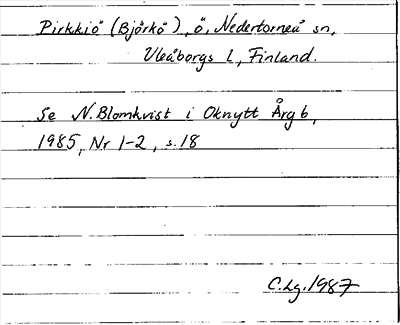 Pirkkiö (Björkö), ö, Nedertorneå sn,
Uleåborgs L, Finland.
Se N. Blomkvist i Oknytt Årg 6,
1985, Nr 1-2, s. 18
C. Lg. 1987